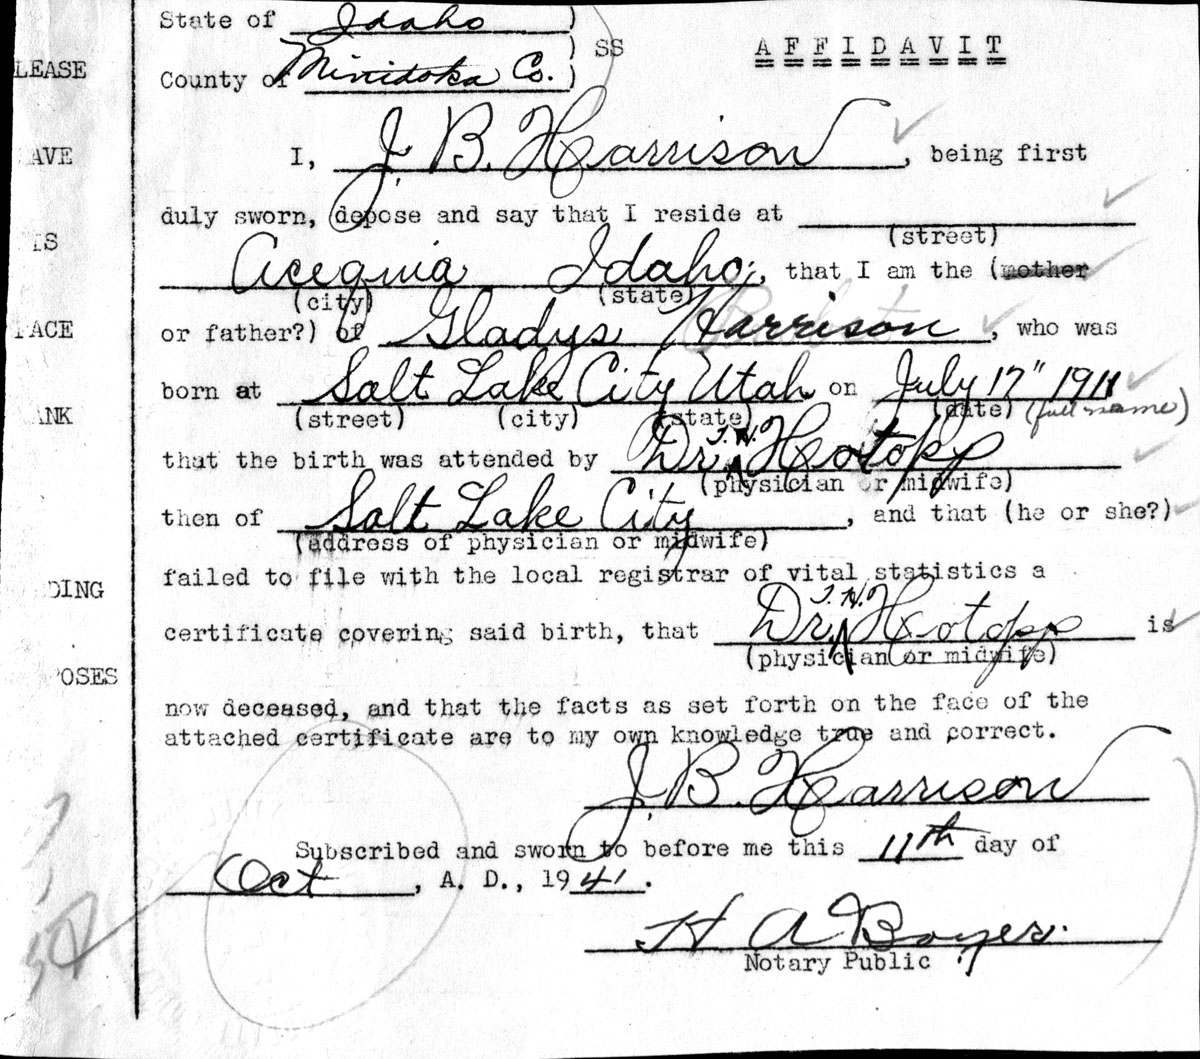 State of Idaho )
) SS AFFIDAVIT
LEASE
County of Minidoka Co. )
AVE
I, J. B. Harrison, being first
duly sworn, depose and say that I reside at
IS
(street)
Acequia Idaho, that I am the (mother
(city) (state)
ACE
or father?) of Gladys Harrison, who was
born at Salt Lake City Utah on July 17" 1911
ANK
(street) (city) (state) (date) (full name)
that the birth was attended by Dr. T. H. Hotopp
(physician or midwife)
then of Salt Lake City, and that (he or she?)
(address of physician or midwife)
DING
failed to file with the local registrar of vital statistics a
certificate covering said birth, that Dr. T. H. Hotopp is
(physician or midwife)
POSES
now deceased, and that the facts as set forth on the face of the
attached certificate are to my own knowledge true and correct.
J. B. Harrison
Subscribed and sworn to before me this 11th day of
Oct, A. D., 1941.
H A Boyer
Notary Public